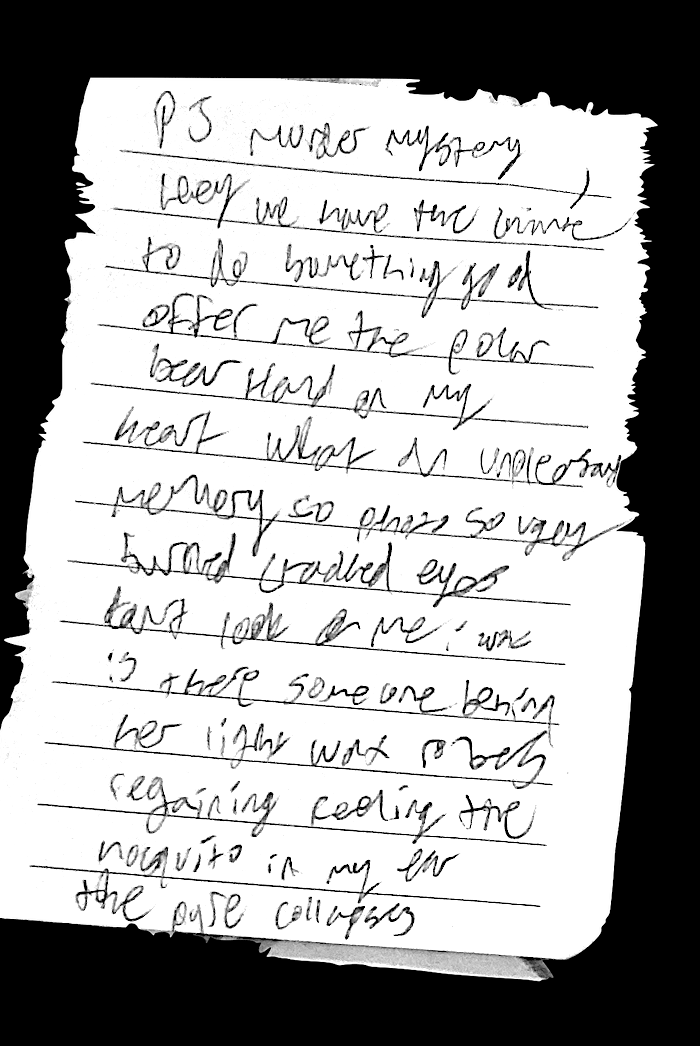 PJ murder mystery
hey we have the
to do something good
offer me the polar
bear Hard on my
heart what an unpleasant
memory so so
burned eyes
look me
is there someone behind
her light
regaining feeling the
mosquito in my ear
the pyre collapses